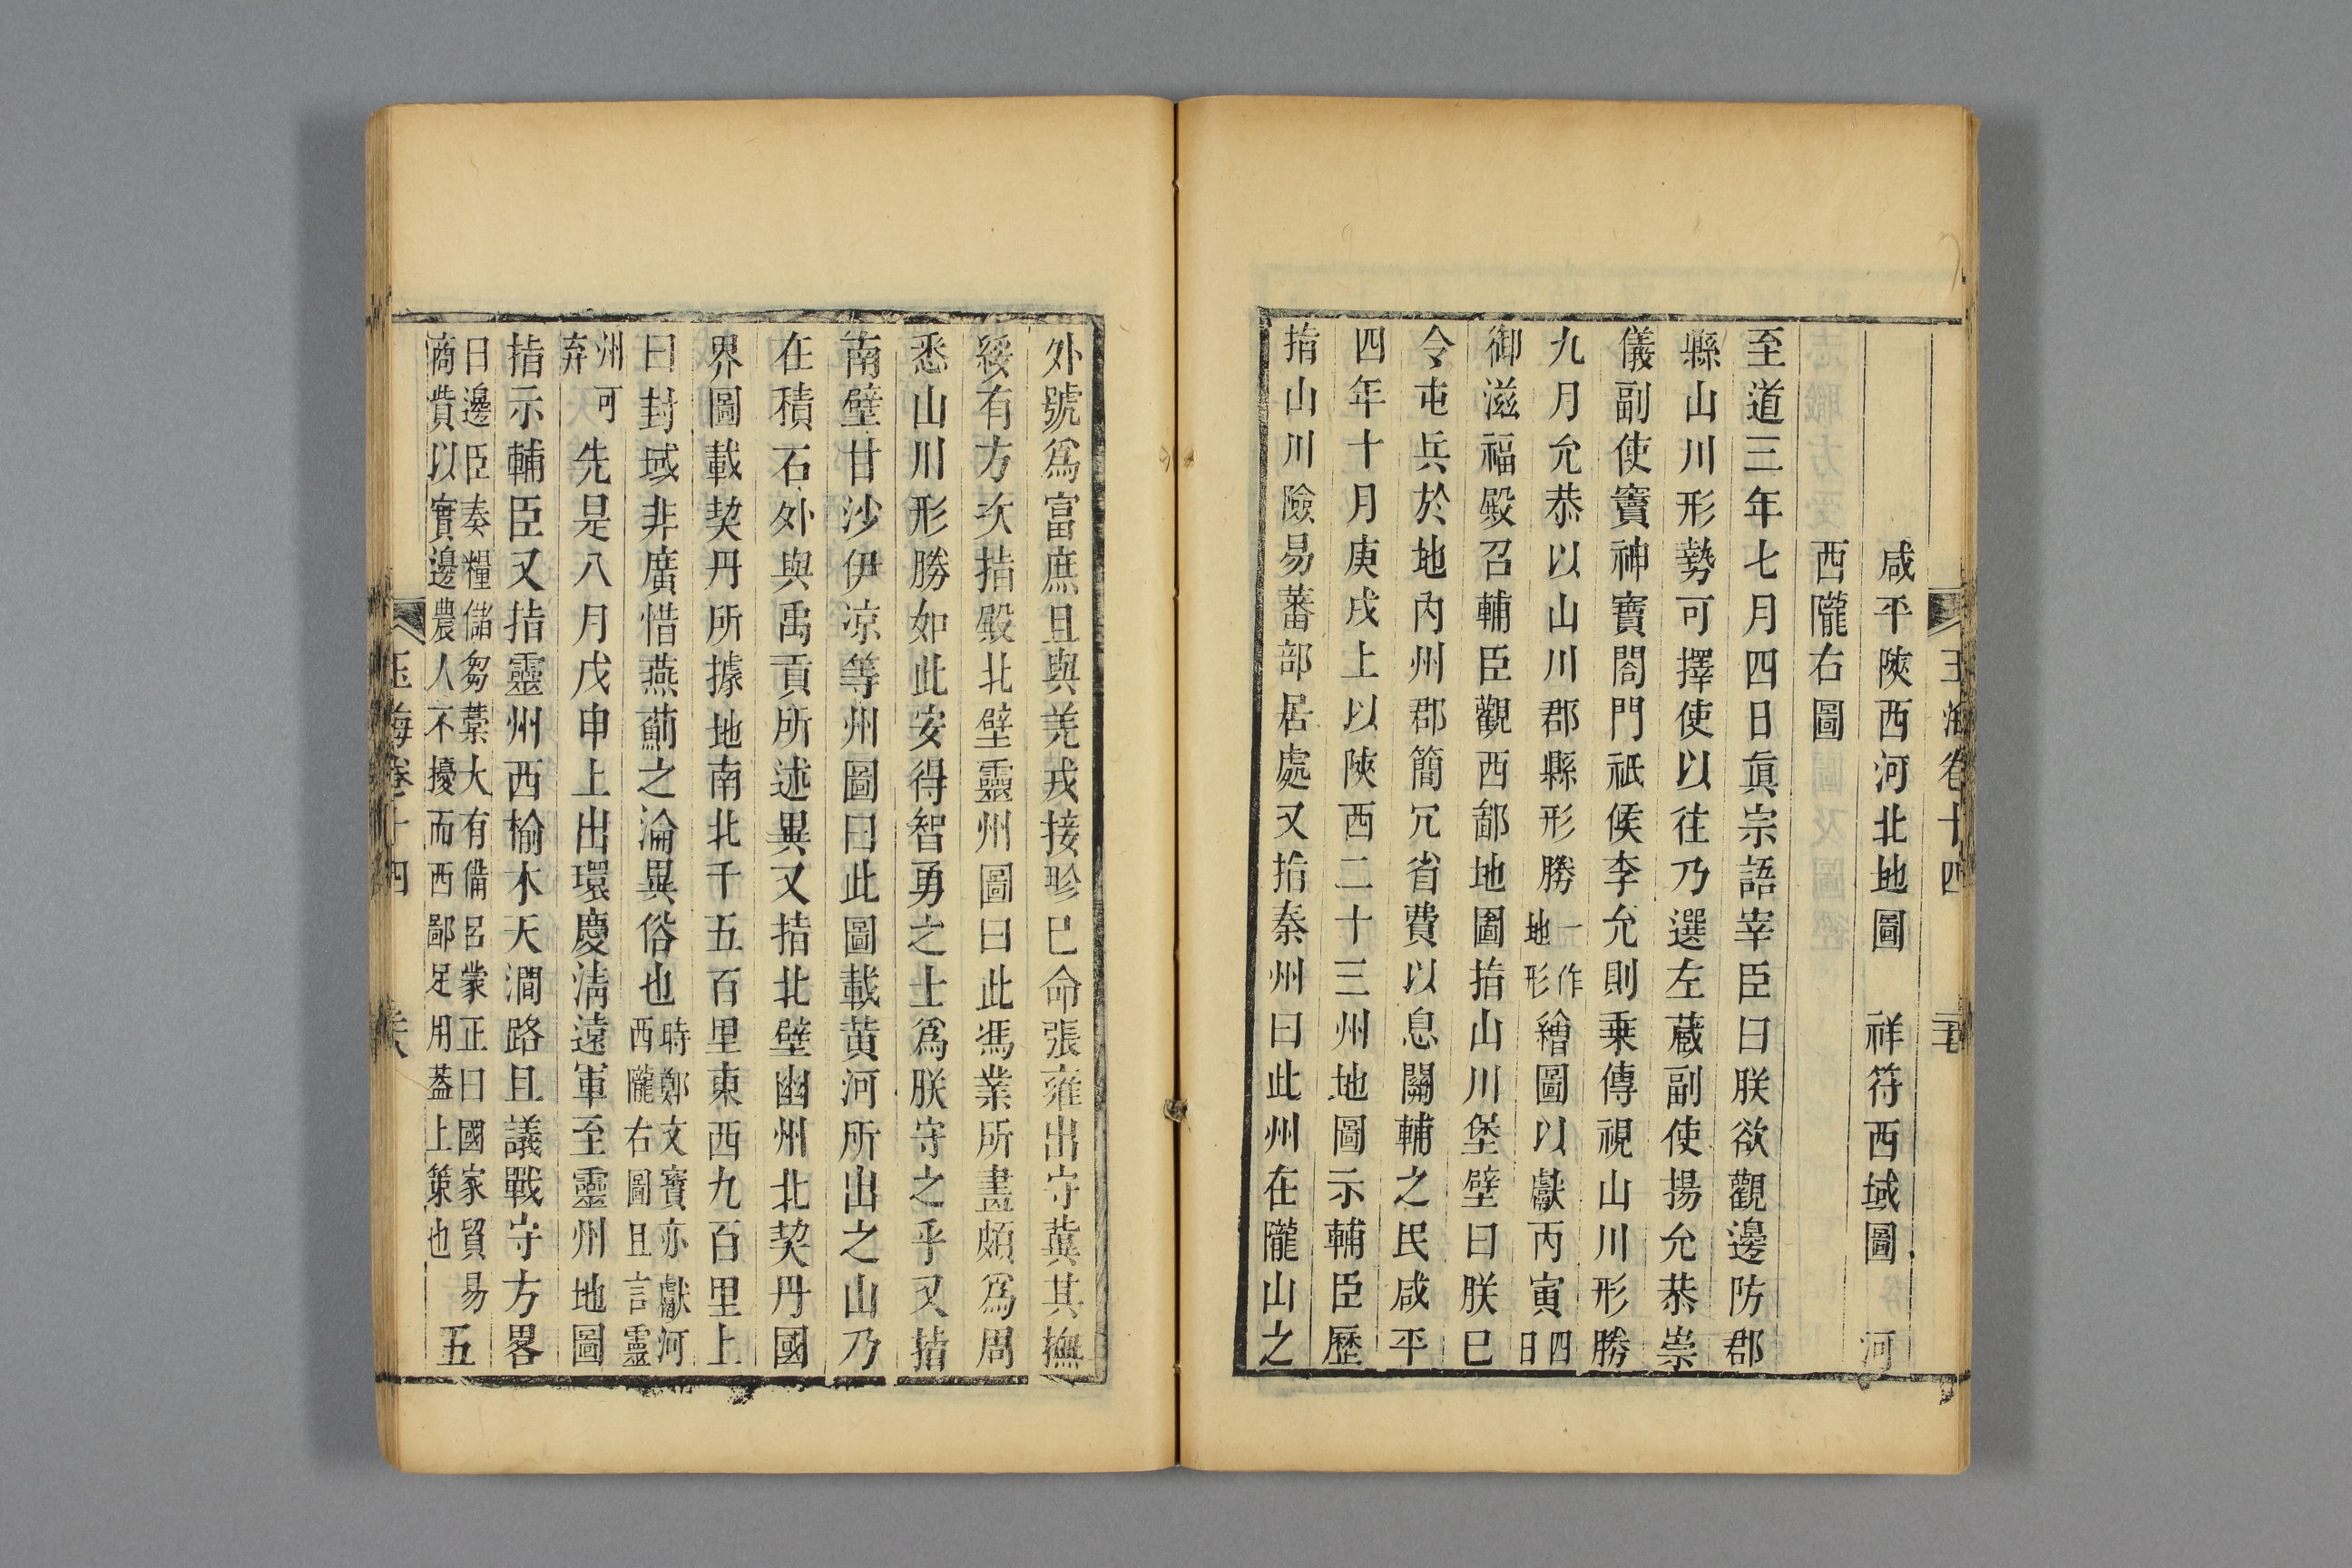 玉海卷十四
咸平陝西河北地圖　祥符西域圖　河
西隴右圖
至道三年七月四日眞宗語宰臣曰朕欲觀邊防郡
縣山川形勢可擇使以往乃選左藏副使揚允恭崇
儀副使竇神寶閤門祗候李允則乗傳視山川形勝
九月允恭以山川郡縣形勝一作地形繪圖以獻丙寅四日
御滋福殿召輔臣觀西鄙地圖指山川堡壁曰朕巳
令屯兵於地內州郡簡冗省費以息關輔之民咸平
四年十月庚戌上以陝西二十三州地圖示輔臣歷
指山川險易蕃部居處又指秦州曰此州在隴山之
外號爲富庶且與羌戎接珍巳命張雍出守蓂其撫
綏有方次指殿北壁靈州圖曰此馮業所畫頗爲周
悉山川形勝如此安得智勇之士爲朕守之乎又指
南壁甘沙伊凉等州圖曰此圖載黄河所出之山乃
在積石外與禹貢所述異又指北壁幽州北契丹國
界圖載契丹所據地南北千五百里東西九百里上
曰封域非廣惜燕薊之淪異俗也時鄭文寳亦獻河西隴右圖且言靈
州可弃先是八月戊申上出環慶清遠軍至靈州地圖
指示輔臣又指靈州西楡木天澗路且議戰守方畧
日邊臣奏糧儲芻藁大有備呂蒙正曰國家貿易
商貲以實邊農人不擾而西鄙足用葢上策也五
玉海卷十四